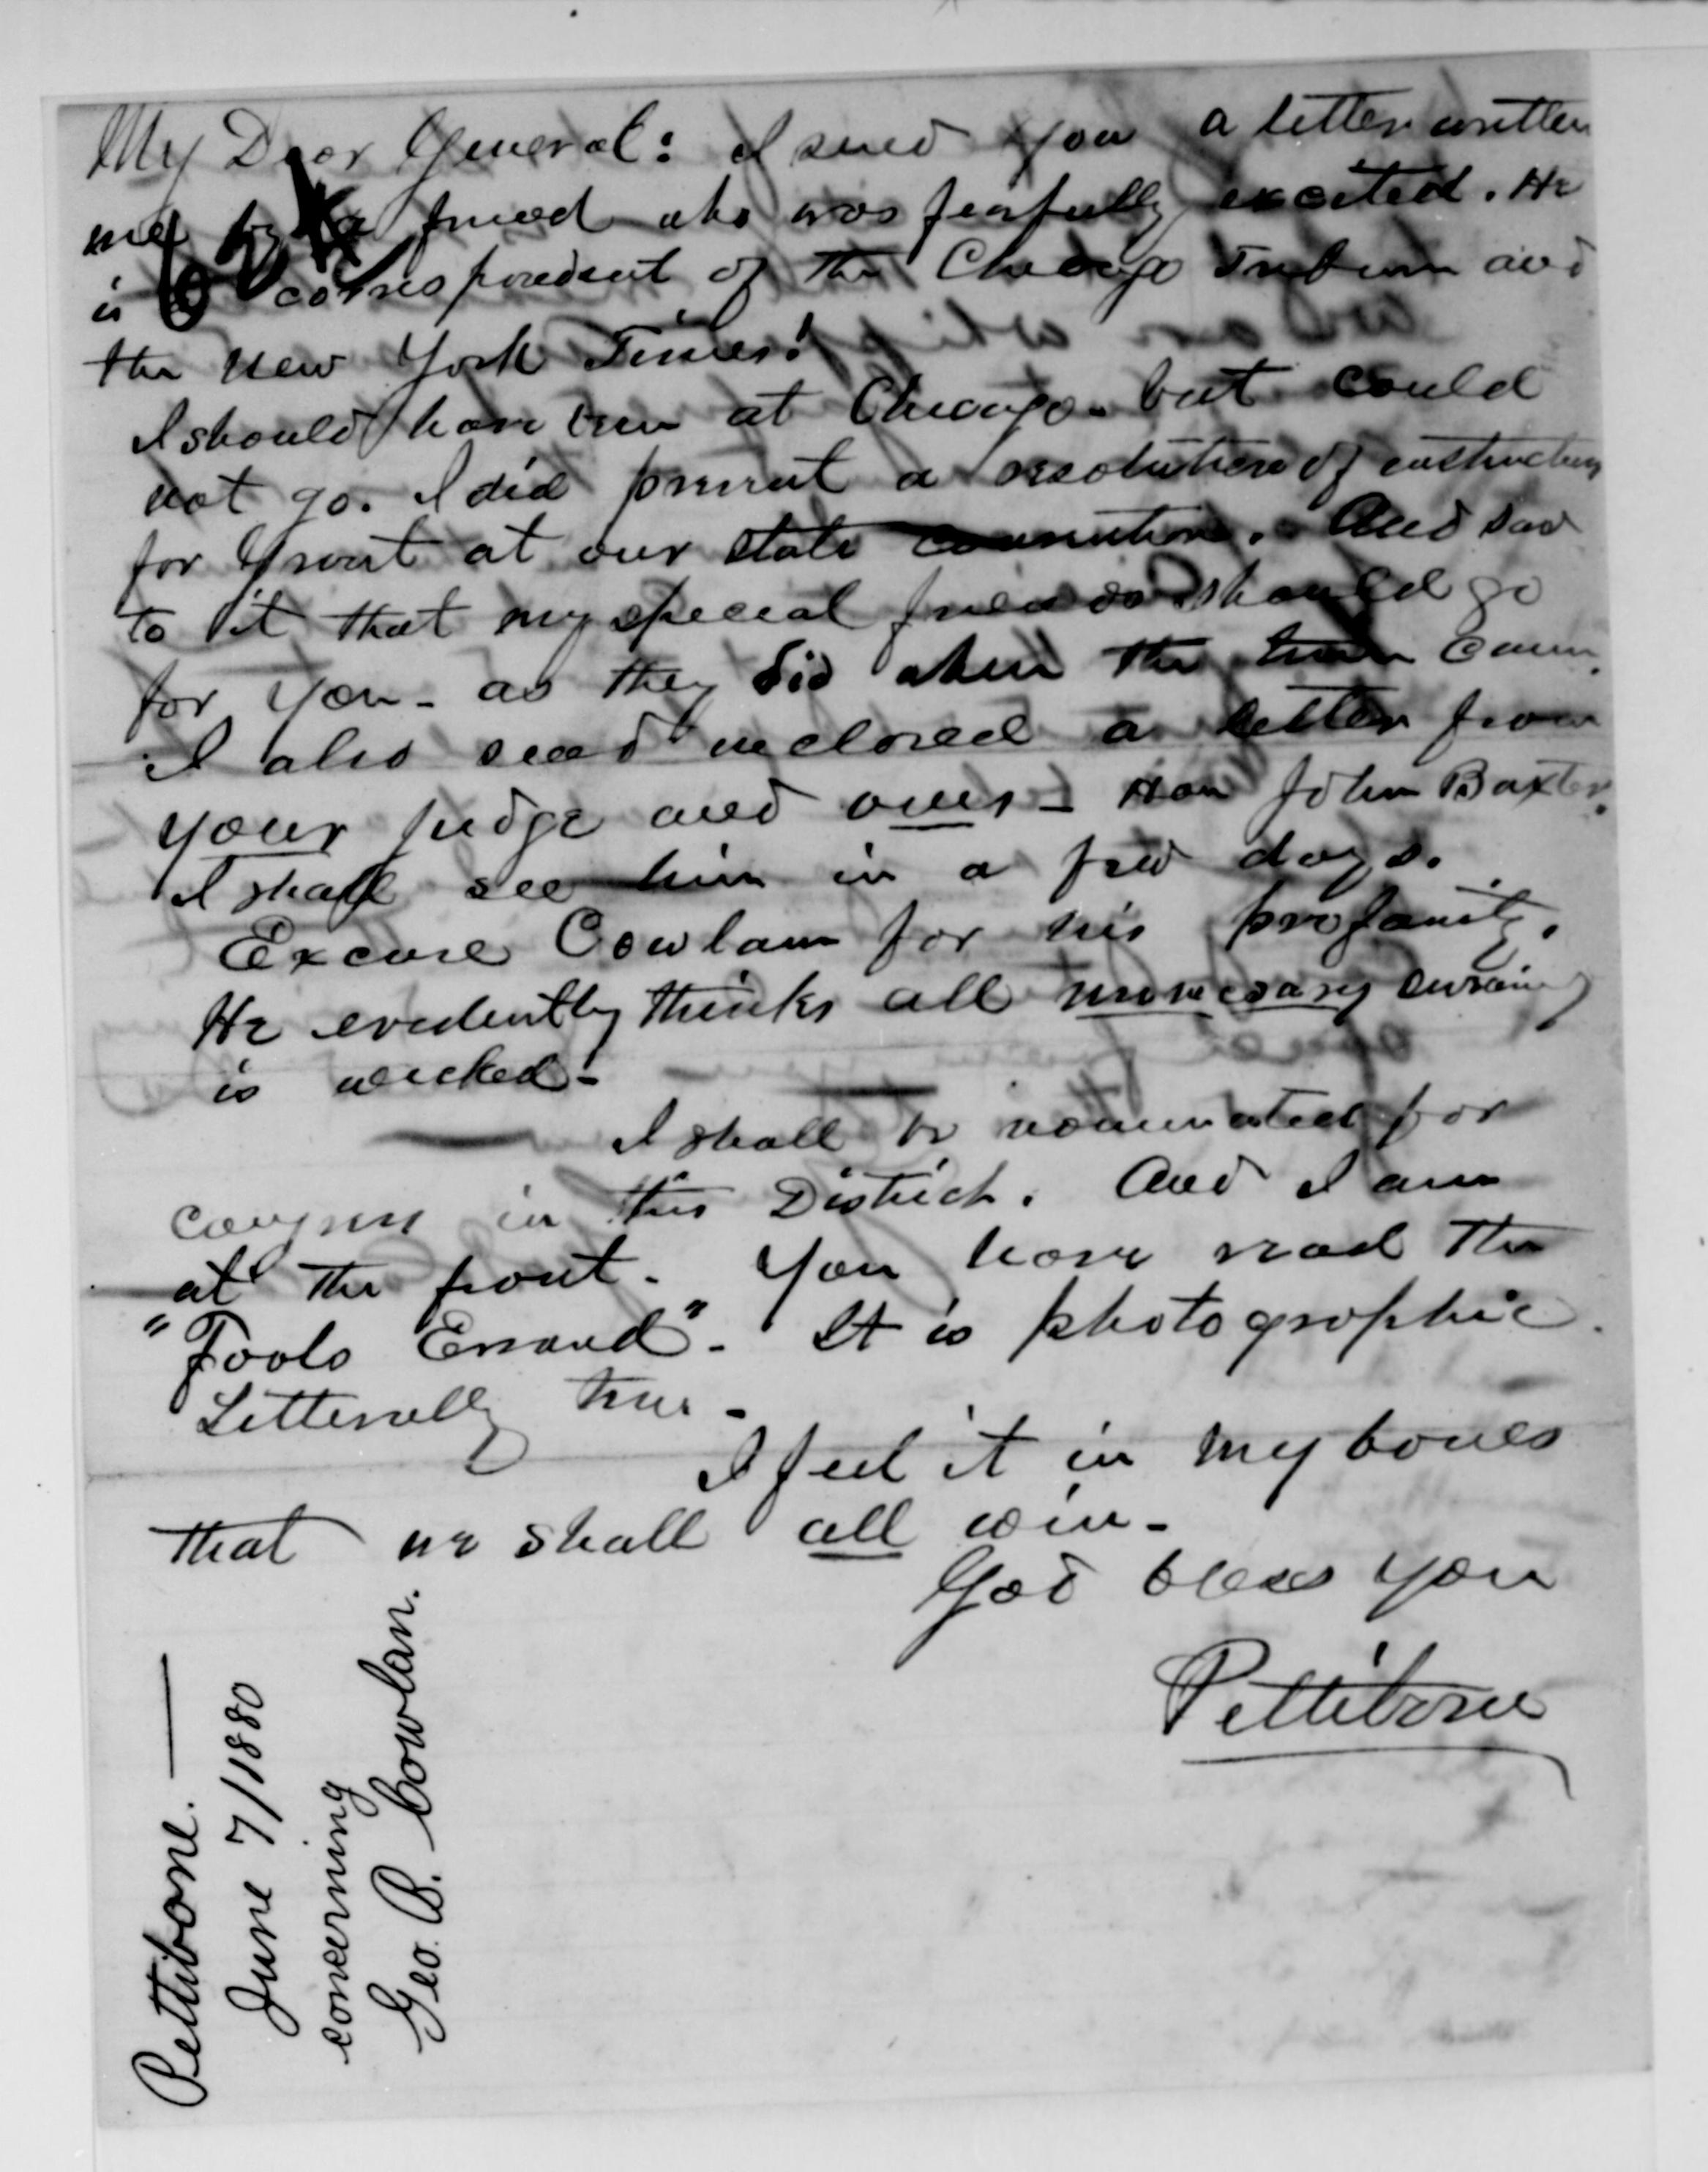 My Dear General: I send you a letter written
me by a friend who was fearfully excited. He
is correspondent of the Chicago Tribune and
the New York Times.
I should have been at Chicago - but could
not go. I did present a resolution of instructions
for Grant at our state convention. And saw
to it that my special friends should go
for you - as they did when the time came.
I also send inclosed a letter from
your judge and ours - Hon John Baxter.
I shall see him in a few days.
Excuse Cowlam for his profanity.
He evidently thinks all unnecessary swearing
is wicked -
I shall be nominated for
congress in this District. And I am
at the front. You have read the
"Fools Errand". It is photographic.
Litterally true -
I feel it in my bones
that we shall all win -
God bless you
Pettibone
Pettibone.
June 7/1880
concerning
Geo. B. Cowlan.